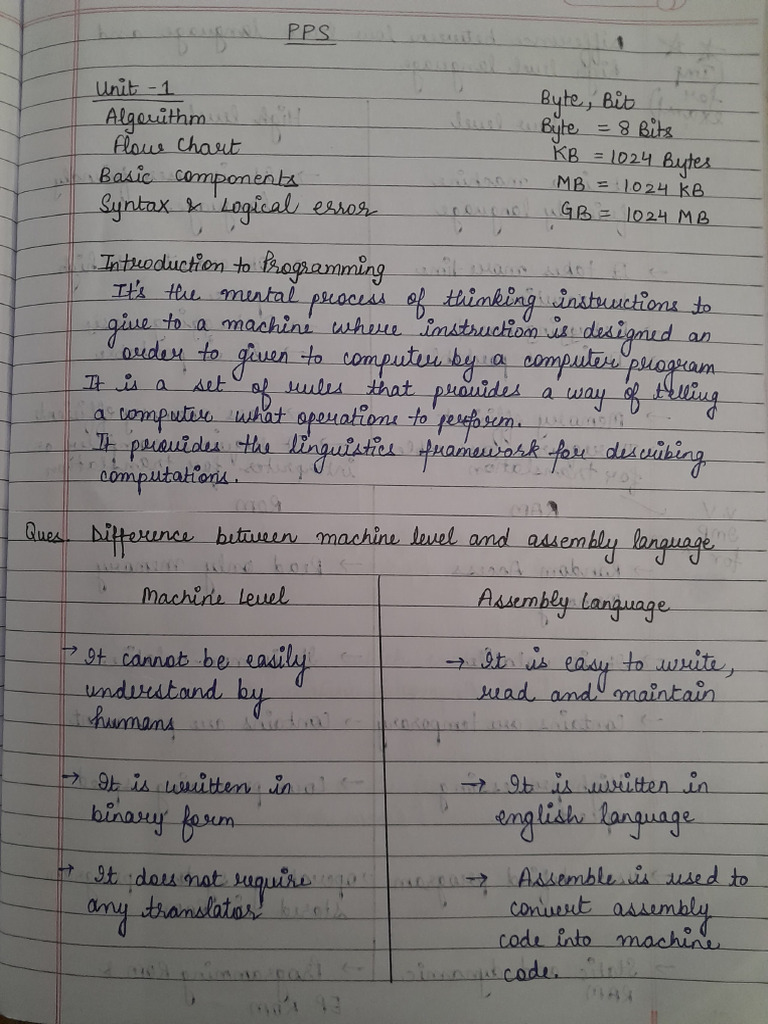 PPS
Unit -1
Algorithm
Flow Chart
Basic components
Syntax & Logical error
Byte, Bit
Byte = 8 Bits
KB = 1024 Bytes
MB = 1024 KB
GB = 1024 MB
Introduction to Programming
It's the mental process of thinking instructions to
give to a machine where instruction is designed an
order to given to computer by a computer program
It is a set of rules that provides a way of telling
a computer what operations to perform.
It provides the linguistics framework for describing
computations.
Ques. Difference between machine level and assembly language
Machine Level
→ It cannot be easily
understand by
humans
→ It is written in
binary form
→ It does not require
any translator
Assembly Language
→ It is easy to write,
read and maintain
→ It is written in
english language
→ Assemble is used to
convert assembly
code into machine
code.